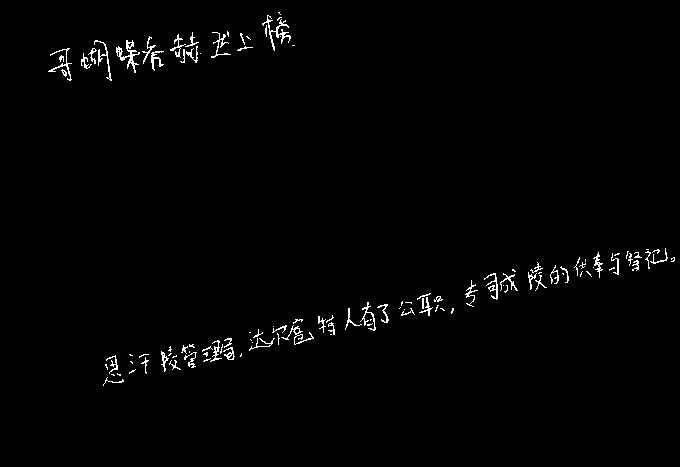 哥蝴蝶谷赫然上榜
思汗陵管理局,达尔扈特人有了公职,专司成陵的供奉与祭祀。